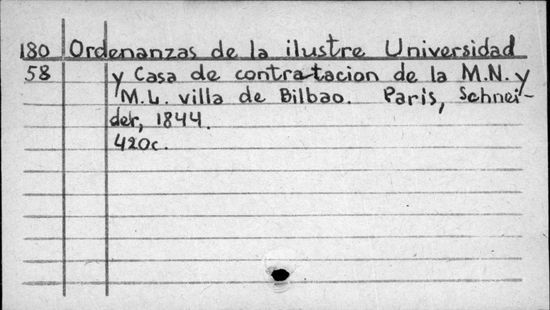 180 Ordenanzas de la ilustre Universidad
58 y Casa de contratacion de la M.N. y
M.L. villa de Bilbao. Paris, Schnei-
der, 1844.
420c.